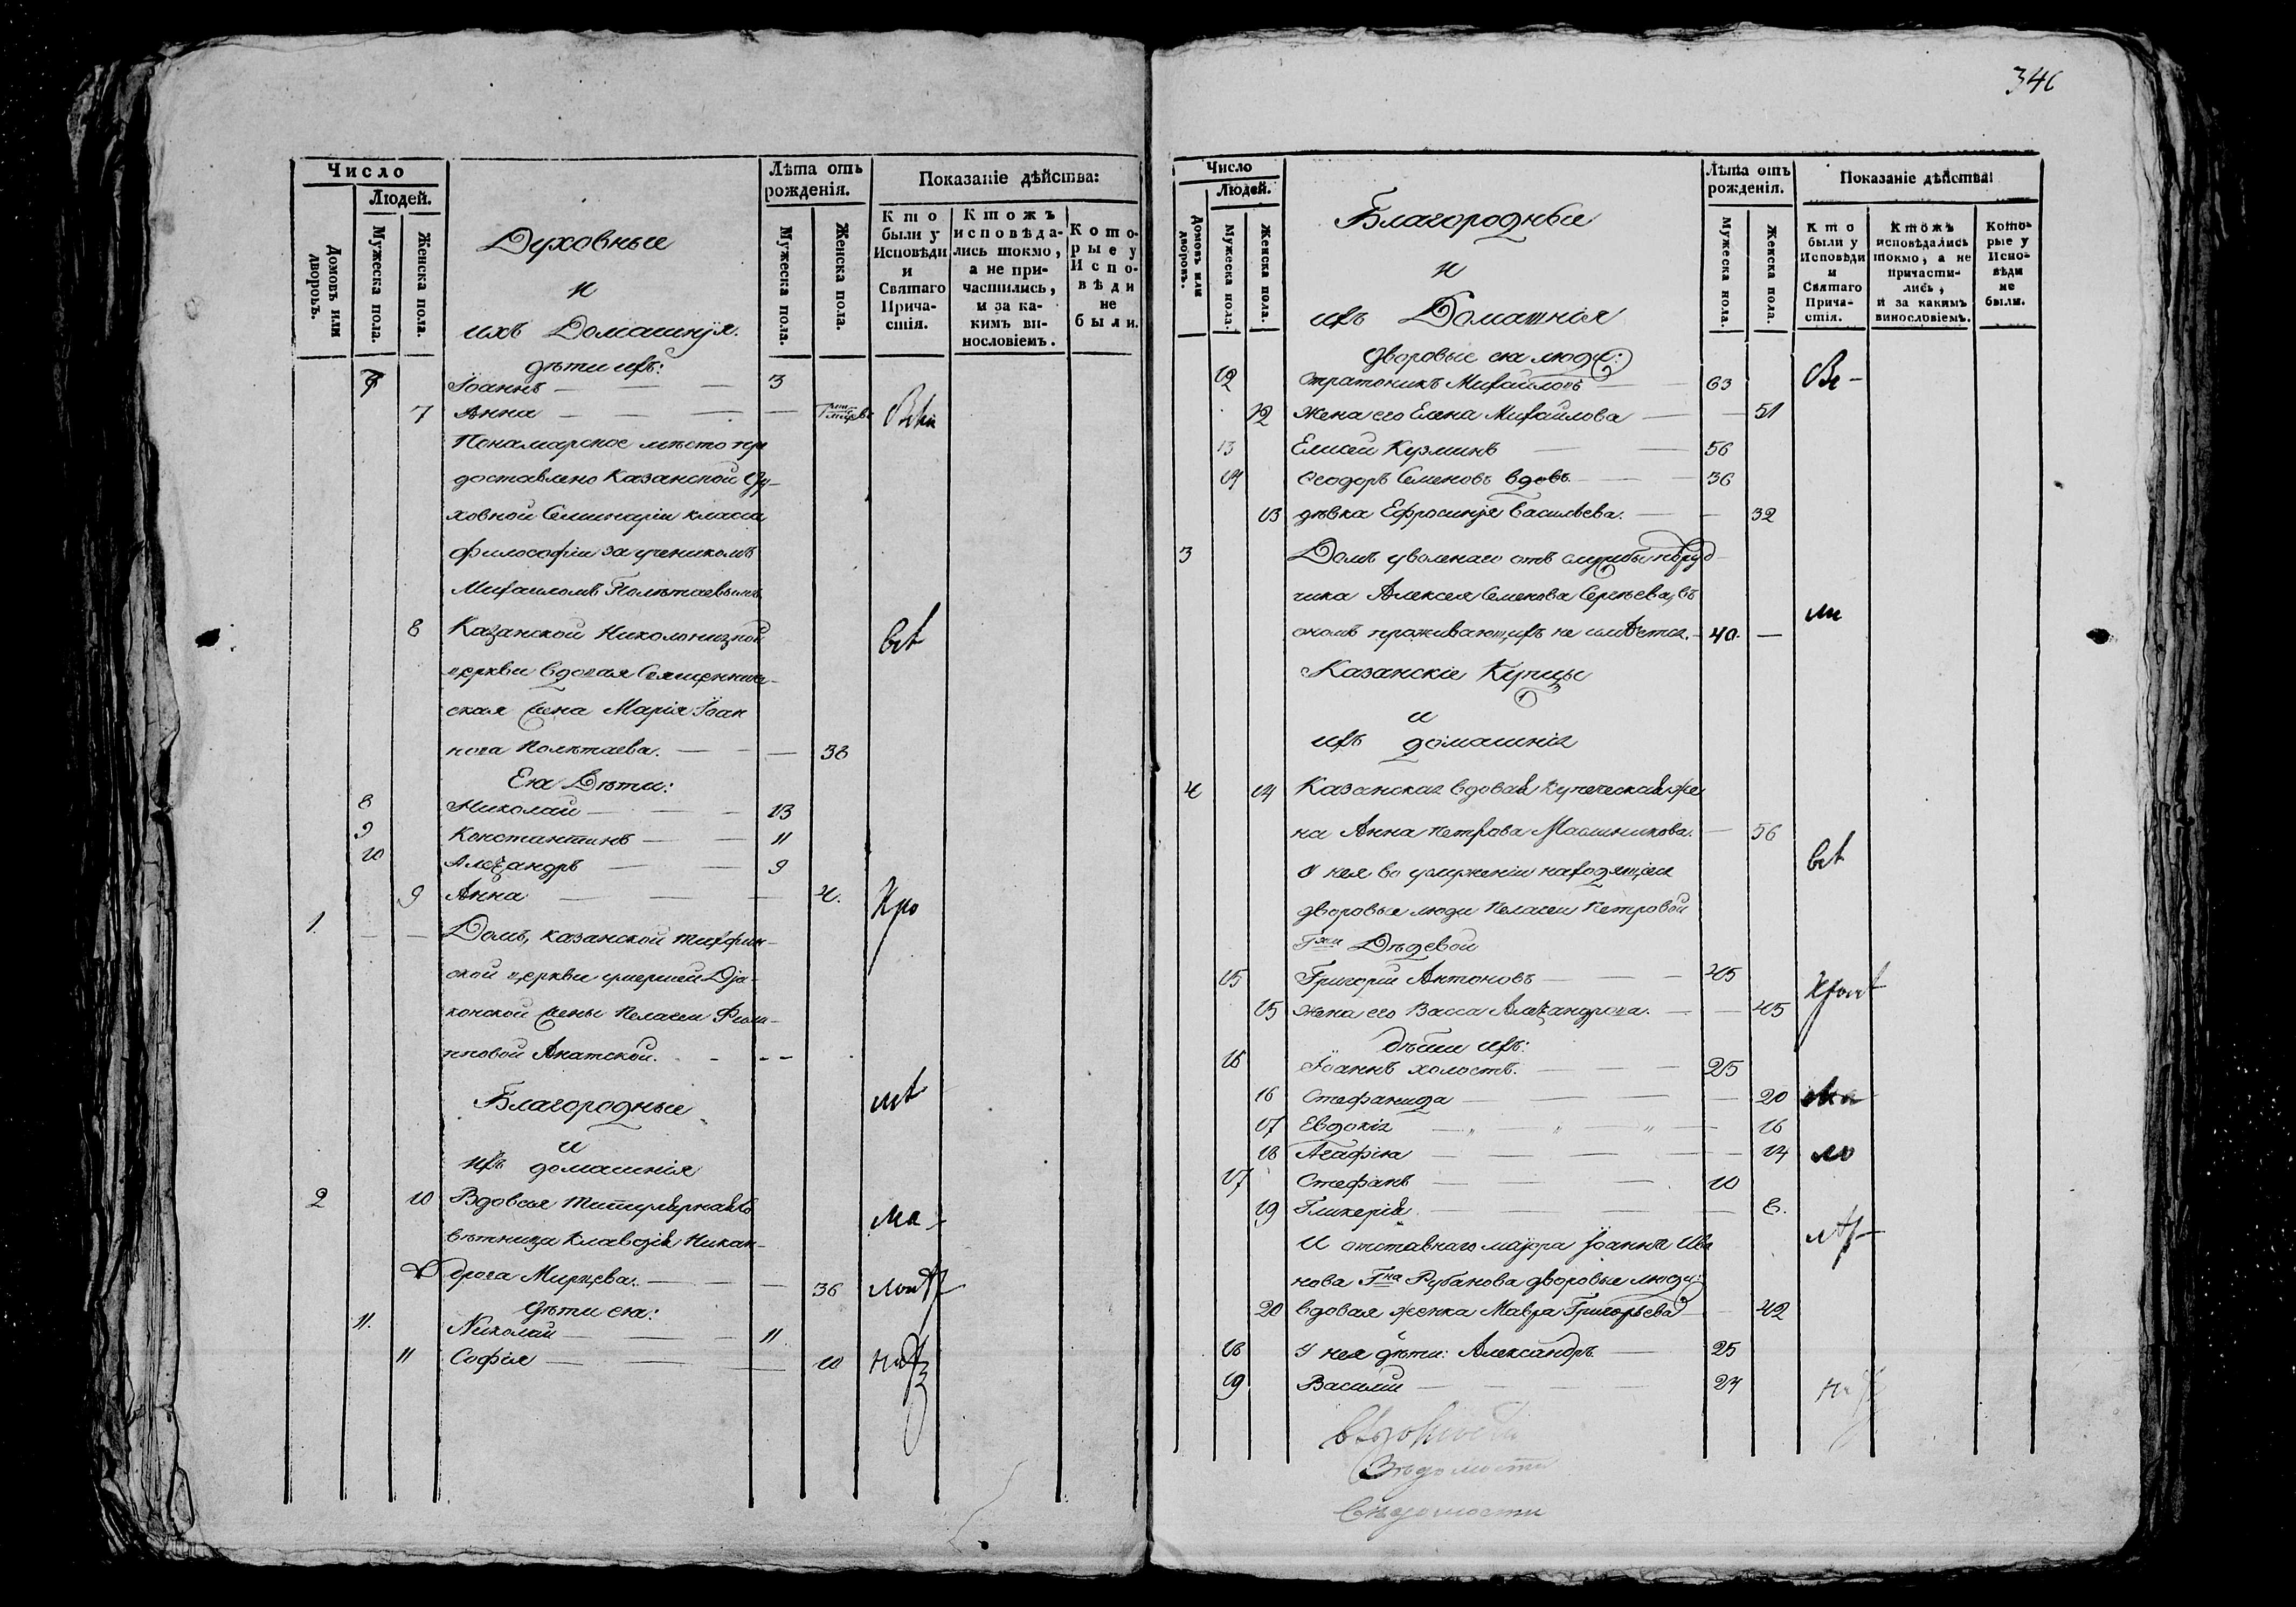 346
Число
Людей.
Домовъ или дворовъ.
Мужеска пола.
Женска пола.
Духовные
и
ихъ Домашнія.
Лѣта отъ рожденія.
Мужеска пола.
Женска пола.
Показаніе дѣйства:
Кто были у Исповѣди и Святаго Причастія.
Ктожъ исповѣдались токмо, а не причастились, и за какимъ винословіемъ.
Которые у Исповѣди не были.
дѣти ихъ:
7 Іоаннъ — — — 3
7 Анна — — — —
Понамарское мѣсто пре
доставлено Казанской Ду-
ховной Семинаріи класса
философіи за ученикомъ
Михаиломъ Полѣтаевымъ
8 Казанской Николонизкой всѣ
церкви вдовая Священниче-
ская жена Марія Іоан
нова Полѣтаева. — — — 38
Ея Дѣти:
8 Николай — — 13
9 Константинъ — — 11
10 Алеѯандръ — — 9
9 Анна — — — 4.
1. — — Домъ, казанской тихфин-
ской церкви умершей Діа-
конской жены Пелагеи Фили-
пповой Анатской. - - -
Благородные
и
ихъ домашнія
2 10 Вдовая титулярная Со
вѣтница Клавдія Никан-
дрова Мирцева. — — — 36
дѣти ея:
11. Николай — — — 11
11 Софія — — — 10
Число
Людей.
Домовъ или дворовъ.
Мужеска пола.
Женска пола.
Благородные
и
ихъ Домашнія
Лѣта отъ рожденія.
Мужеска пола.
Женска пола.
Показаніе дѣйства:
Кто были у Исповѣди и Святаго Причастія.
Ктожъ исповѣдались токмо, а не причастились, и за какимъ винословіемъ.
Которые у Исповѣди не были.
дворовые ея люди:
12 Стратоникъ Михайловъ — 63
12 Жена его Елена Михайлова — — 51
13 Елисей Кузминъ — — 56
14 Ѳеодоръ Семеновъ вдовъ. — — 36
13 дѣвка Ефросинія Васильева. — — 32
3 Домъ уволенаго отъ службы поруд
чика Алексея Семенова Сергѣева, въ
ономъ проживающихъ не имѣется. 40. —
Казанскіе Купцы
и
ихъ домашнія
4 14 Казанская вдовая купеческая же
на Анна Петрова Масленикова. — 56
всѣ
У нея во услуженіи находящіеся
дворовые люди Пелагеи Петровой
Гжи Дѣдевой
15 Григорій Антоновъ — — — 45
15 Жена его Васса Алеѯандрова. — — 45
дѣти ихъ:
16 Іоаннъ холостъ. — — — 25
16 Стефанида — — — — 20
17 Евдокія — „ — „ — „ — 16
18 Агафія — — — — — 14
17 Стефанъ — — — 10
19 Гликерія — — — — 8.
И отставнаго маіора Іоанна Ива
нова Гна Рубанова дворовые люди:
20 вдовая женка Мавра Григорьева — 42
18 У нея дѣти: Александръ — 25
19 Василій — — — — 24
Вѣдомости
Вѣдомости